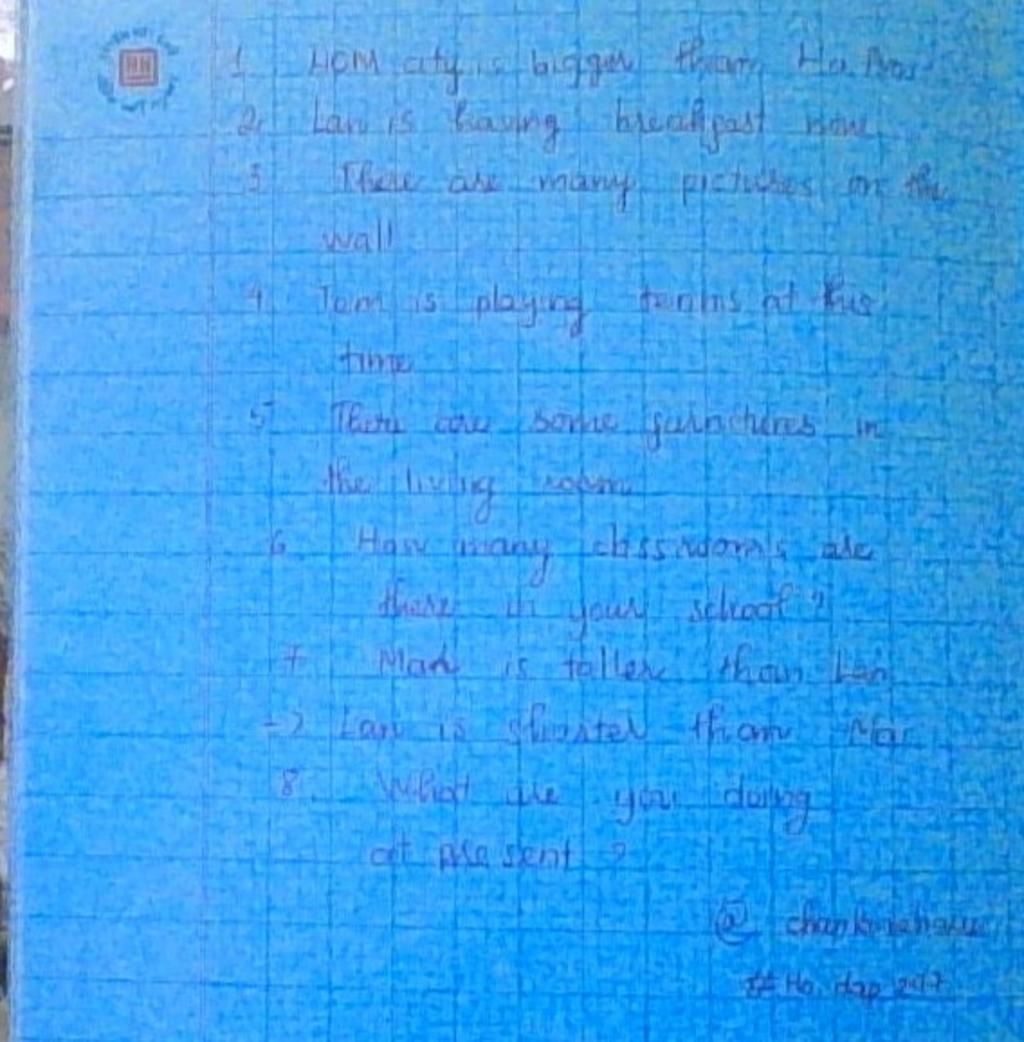 1 HCM city is bigger than Ha Noi
2. Lan is having breakfast now
3 There are many pictures on the
wall
4 Tom is playing tennis at this
time
5 There are some furnitures in
the living room
6. How many classrooms are
there in your school?
7 is taller than Lan
-> Lan is shorter than
8. What are you doing
at present?
@
# 247